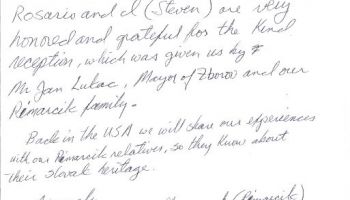 Rosario and I (Steven) are very
honored and grateful for the kind
reception, which was given us by
Mr Jan Lukac, Mayor of Zborov and our
Rimarcik family.
Back in the USA we will share our experiences
with our Rimarcik relatives, so they know about
their Slovak heritage.
(Rimarcik)